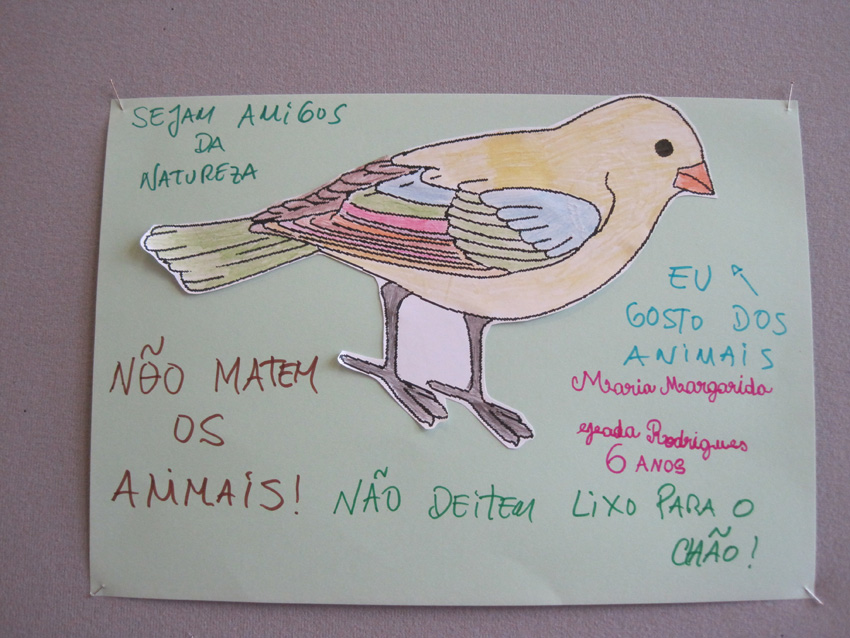 SEJAM AMIGOS
DA
NATUREZA
EU
GOSTO DOS
ANIMAIS
Maria Margarida
Rodrigues
6 ANOS
NÃO MATEM
OS
ANIMAIS!
NÃO DEITEM LIXO PARA O
CHÃO!